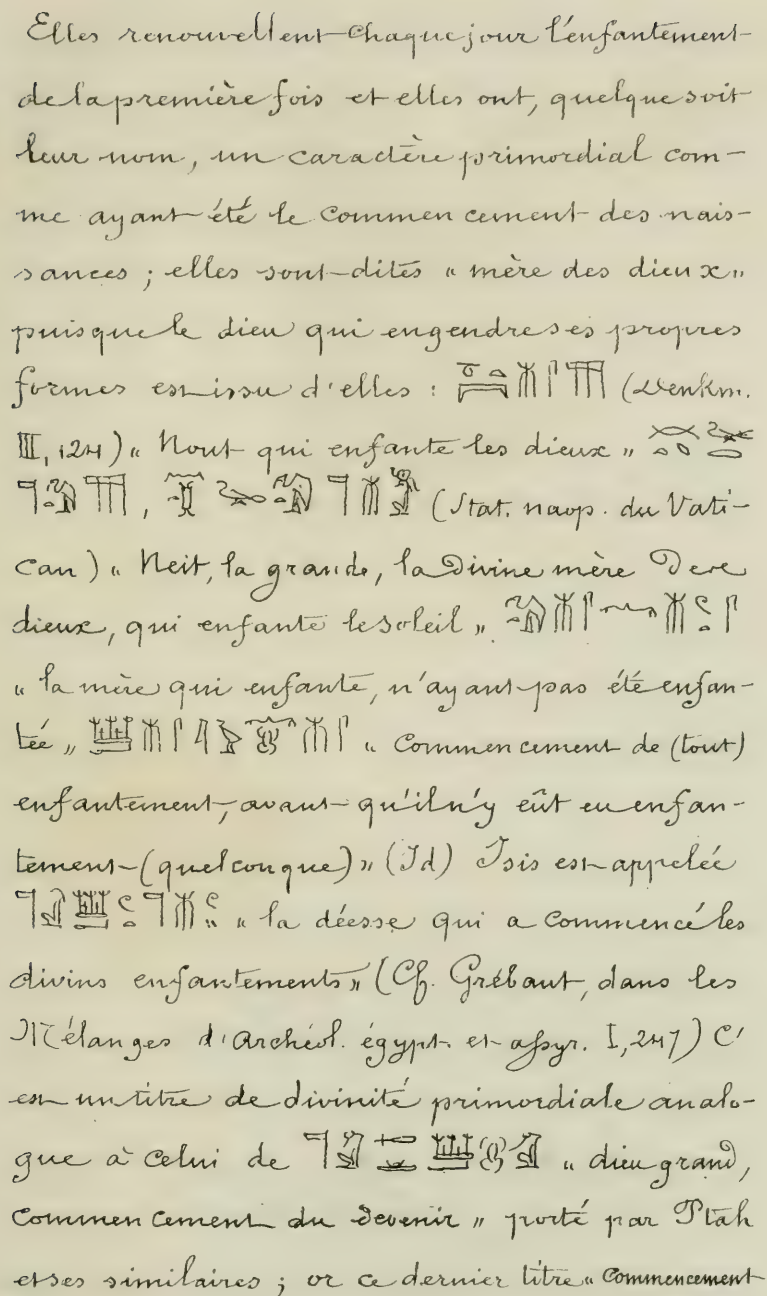 Elles renouvellent chaque jour l'enfantement
de la première fois et elles ont, quelque soit
leur nom, un caractère primordial com-
me ayant été le commencement des nais-
sances ; elles sont dites « mère des dieux »
puisque le dieu qui engendre ses propres
formes est issu d'elles : (Denkm.
III, 124) « Nout qui enfante les dieux »
, (Stat. naop. du Vati-
can) « Neit, la grande, la divine mère des
dieux, qui enfante le soleil »
« la mère qui enfante, n'ayant pas été enfan-
tée » « Commencement de (tout)
enfantement, avant qu'il n'y eût eu enfan-
tement (quelconque) » (Id) Isis est appelée
« la déesse qui a commencé les
divins enfantements » (Cf. Grébaut, dans les
Mélanges d'Archéol. égypt. et assyr. I, 247) C'
est un titre de divinité primordiale analo-
gue à celui de « dieu grand,
commencement du devenir » porté par Ptah
et ses similaires ; or ce dernier titre « Commencement